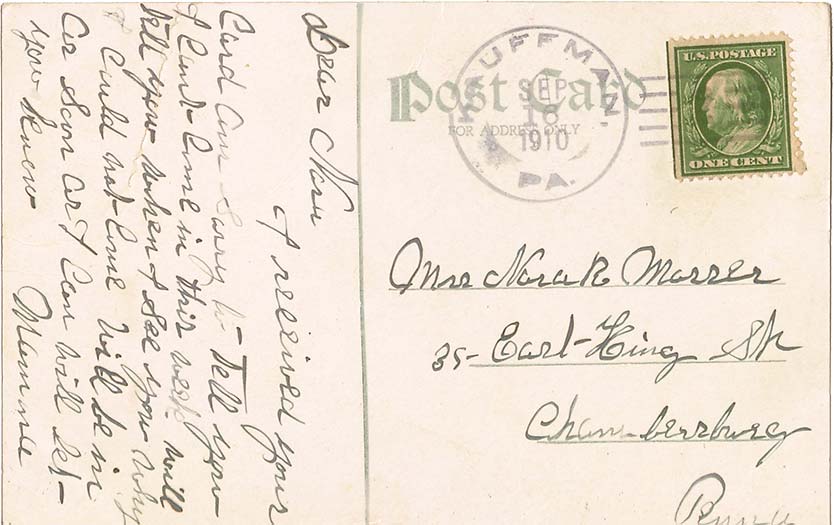 Dear Nora
I received your
Card Am Sorry to Tell you
I Cant Come in this week will
tell you when I see you why
I Could not Come Will be in
as Soon as I Can will let
you know
Mamma
Post Card
FOR ADDRESS ONLY
KAUFFMAN,
SEP
16
1910
PA.
U.S. POSTAGE
ONE CENT
Mrs Nora R Morrer
35 East King St
Chambersburg
Penna